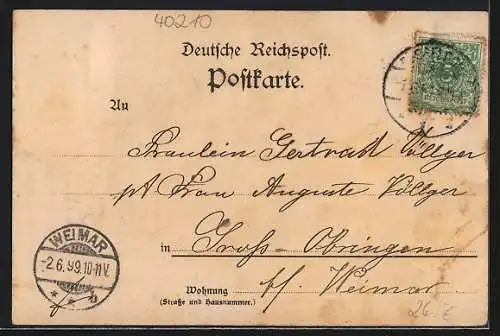 40210
Deutsche Reichspost.
Postkarte.
An
Fräulein Gertrud Völlger
pt Frau Auguste Völlger
in Gross-Obringen
b/. Weimar
Wohnung
(Straße und Hausnummer.)
WEIMAR
-2.6.99.10-11V.
26.E